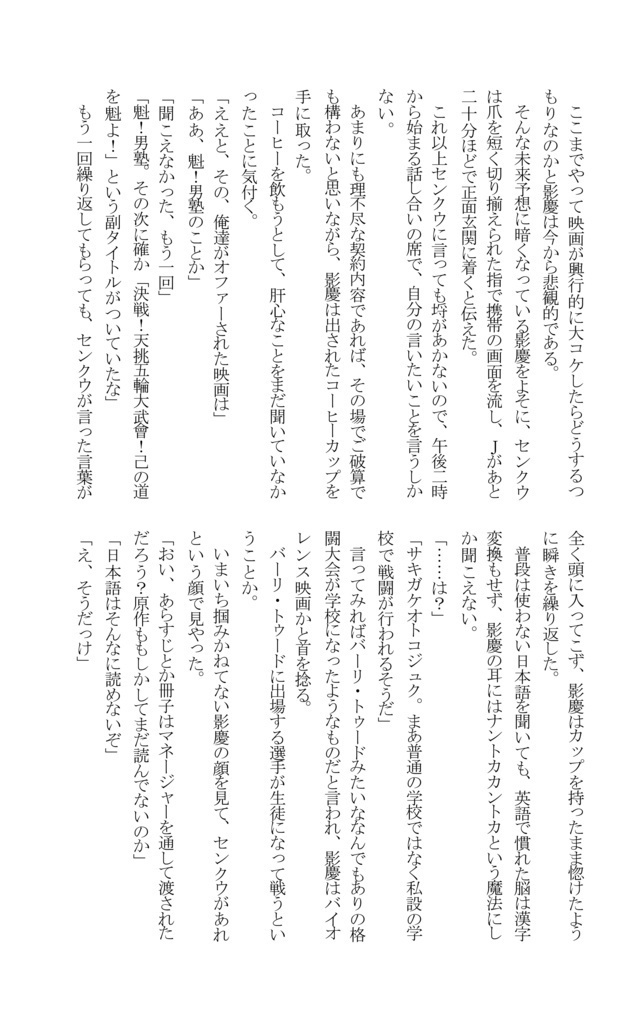 ここまでやって映画が興行的に大コケしたらどうするつ
もりなのかと影慶は今から悲観的である。
　そんな未来予想に暗くなっている影慶をよそに、センクウ
は爪を短く切り揃えられた指で携帯の画面を流し、Ｊがあと
二十分ほどで正面玄関に着くと伝えた。
　これ以上センクウに言っても埒があかないので、午後二時
から始まる話し合いの席で、自分の言いたいことを言うしか
ない。
　あまりにも理不尽な契約内容であれば、その場でご破算で
も構わないと思いながら、影慶は出されたコーヒーカップを
手に取った。
　コーヒーを飲もうとして、肝心なことをまだ聞いていなか
ったことに気付く。
「ええと、その、俺達がオファーされた映画は」
「ああ、魁！男塾のことか」
「聞こえなかった、もう一回」
「魁！男塾。その次に確か「決戦！天挑五輪大武會！己の道
を魁よ！」という副タイトルがついていたな」
　もう一回繰り返してもらっても、センクウが言った言葉が
全く頭に入ってこず、影慶はカップを持ったまま惚けたよう
に瞬きを繰り返した。
　普段は使わない日本語を聞いても、英語で慣れた脳は漢字
変換もせず、影慶の耳にはナントカカントカという魔法にし
か聞こえない。
「……は？」
「サキガケオトコジュク。まあ普通の学校ではなく私設の学
校で戦闘が行われるそうだ」
　言ってみればバーリ・トゥードみたいななんでもありの格
闘大会が学校になったようなものだと言われ、影慶はバイオ
レンス映画かと首を捻る。
　バーリ・トゥードに出場する選手が生徒になって戦うとい
うことか。
　いまいち掴みかねてない影慶の顔を見て、センクウがあれ
という顔で見やった。
「おい、あらすじとか冊子はマネージャーを通して渡された
だろう？原作ももしかしてまだ読んでないのか」
「日本語はそんなに読めないぞ」
「え、そうだっけ」